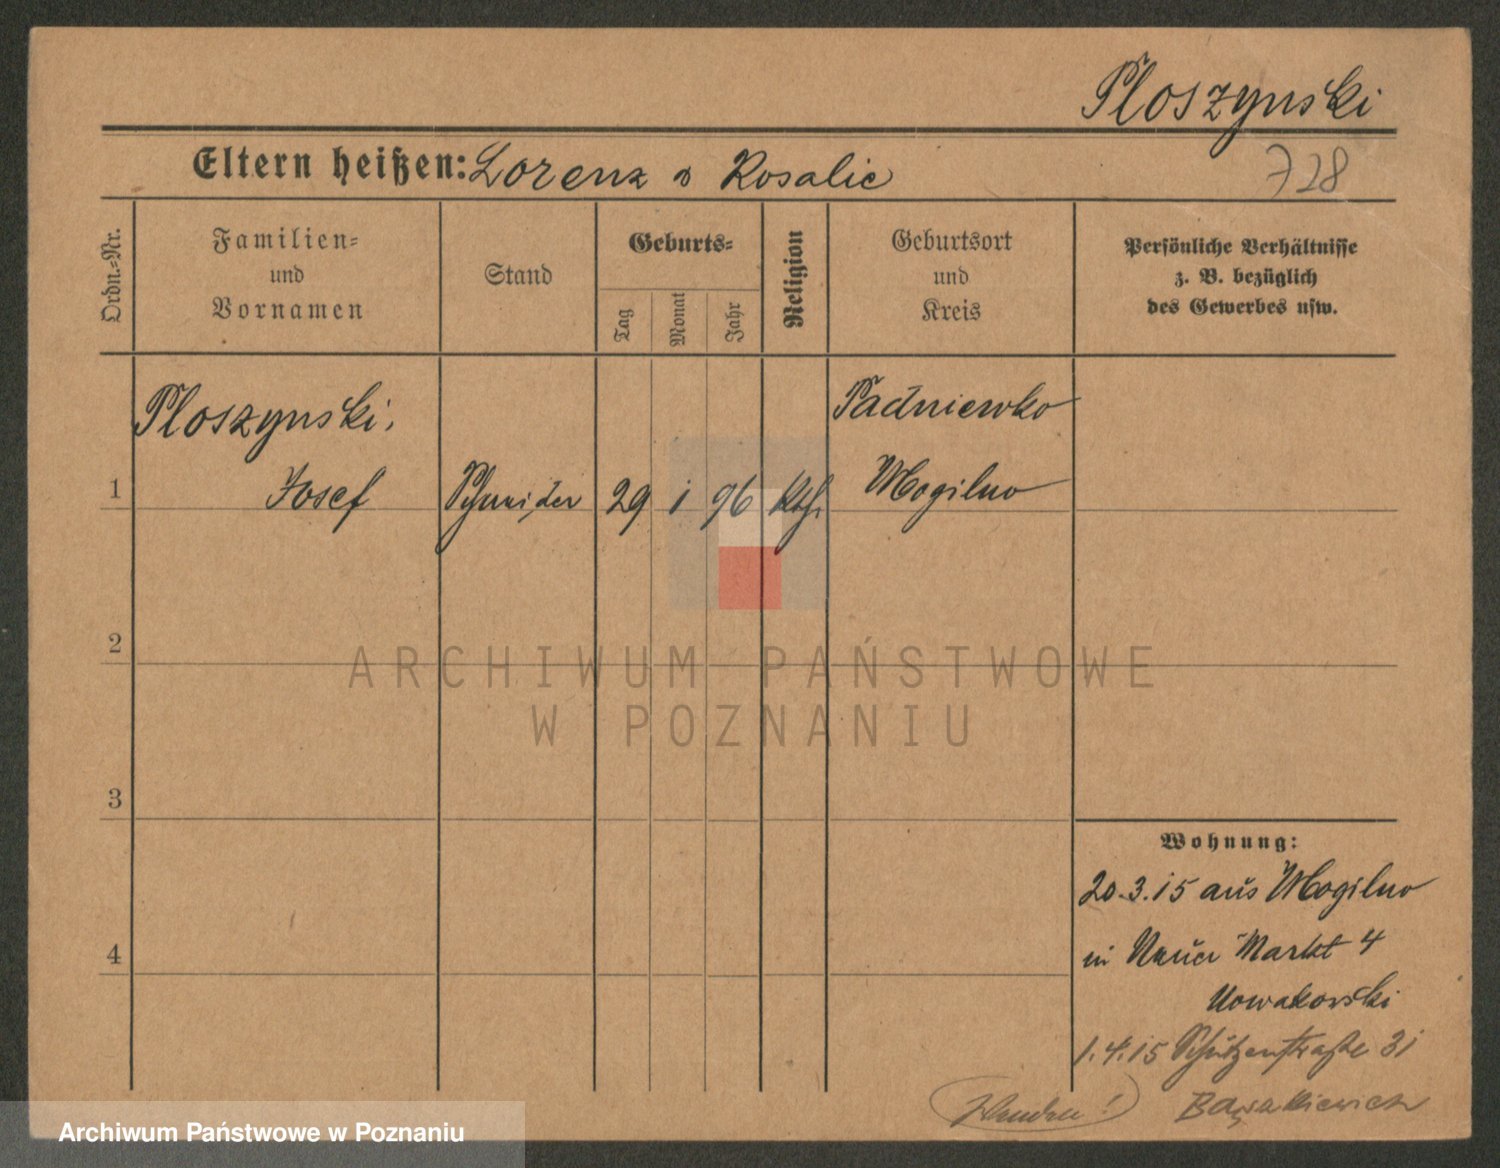 Ploszynski
Eltern heißen: Lorenz u Rosalie
728
Ordn.-Nr.
Familien-
und
Vornamen
Stand
Geburts-
Tag
Monat
Jahr
Religion
Geburtsort
und
Kreis
Persönliche Verhältnisse
z. B. bezüglich
des Gewerbes usw.
Ploszynski,
Padniewko
1 Josef Schneider 29 1 96 kth. Mogilno
2
ARCHIWUM PAŃSTWOWE
W POZNANIU
3
Wohnung:
20.3.15 aus Mogilno
4
in Neuer Markt 4
Nowakowski
1.4.15 Schützenstraße 31
Wenden!
Archiwum Państwowe w Poznaniu